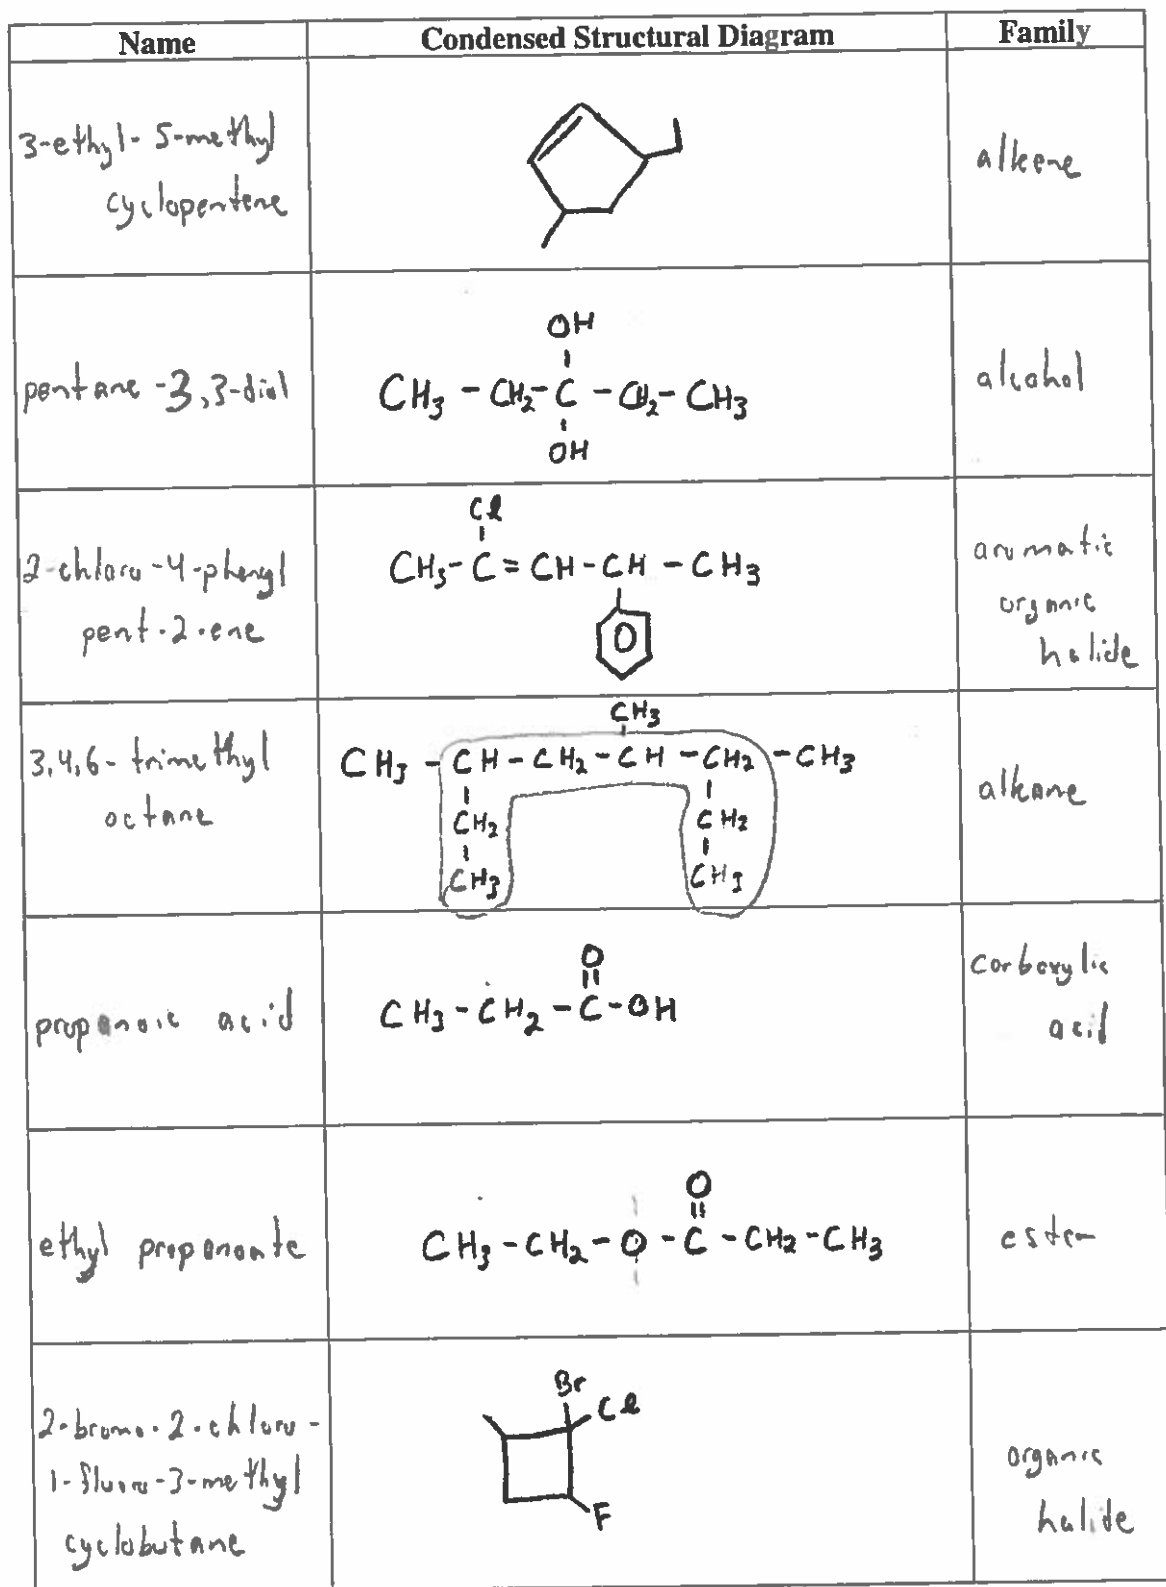 Name Condensed Structural Diagram Family
3-ethyl-5-methyl
cyclopentene
alkene
pentane-3,3-diol
OH
CH₃ - CH₂ - C - CH₂ - CH₃
OH
alcohol
2-chloro-4-phenyl
pent-2-ene
Cl
CH₃ - C = CH - CH - CH₃
aromatic
organic
halide
3,4,6-trimethyl
octane
CH₃
CH₃ - CH - CH₂ - CH - CH₂ - CH₃
CH₂ CH₂
CH₃ CH₃
alkane
propanoic acid
O
CH₃ - CH₂ - C - OH
carboxylic
acid
ethyl propanoate
O
CH₃ - CH₂ - O - C - CH₂ - CH₃
ester
2-bromo-2-chloro-
1-fluoro-3-methyl
cyclobutane
Br
Cl
F
organic
halide